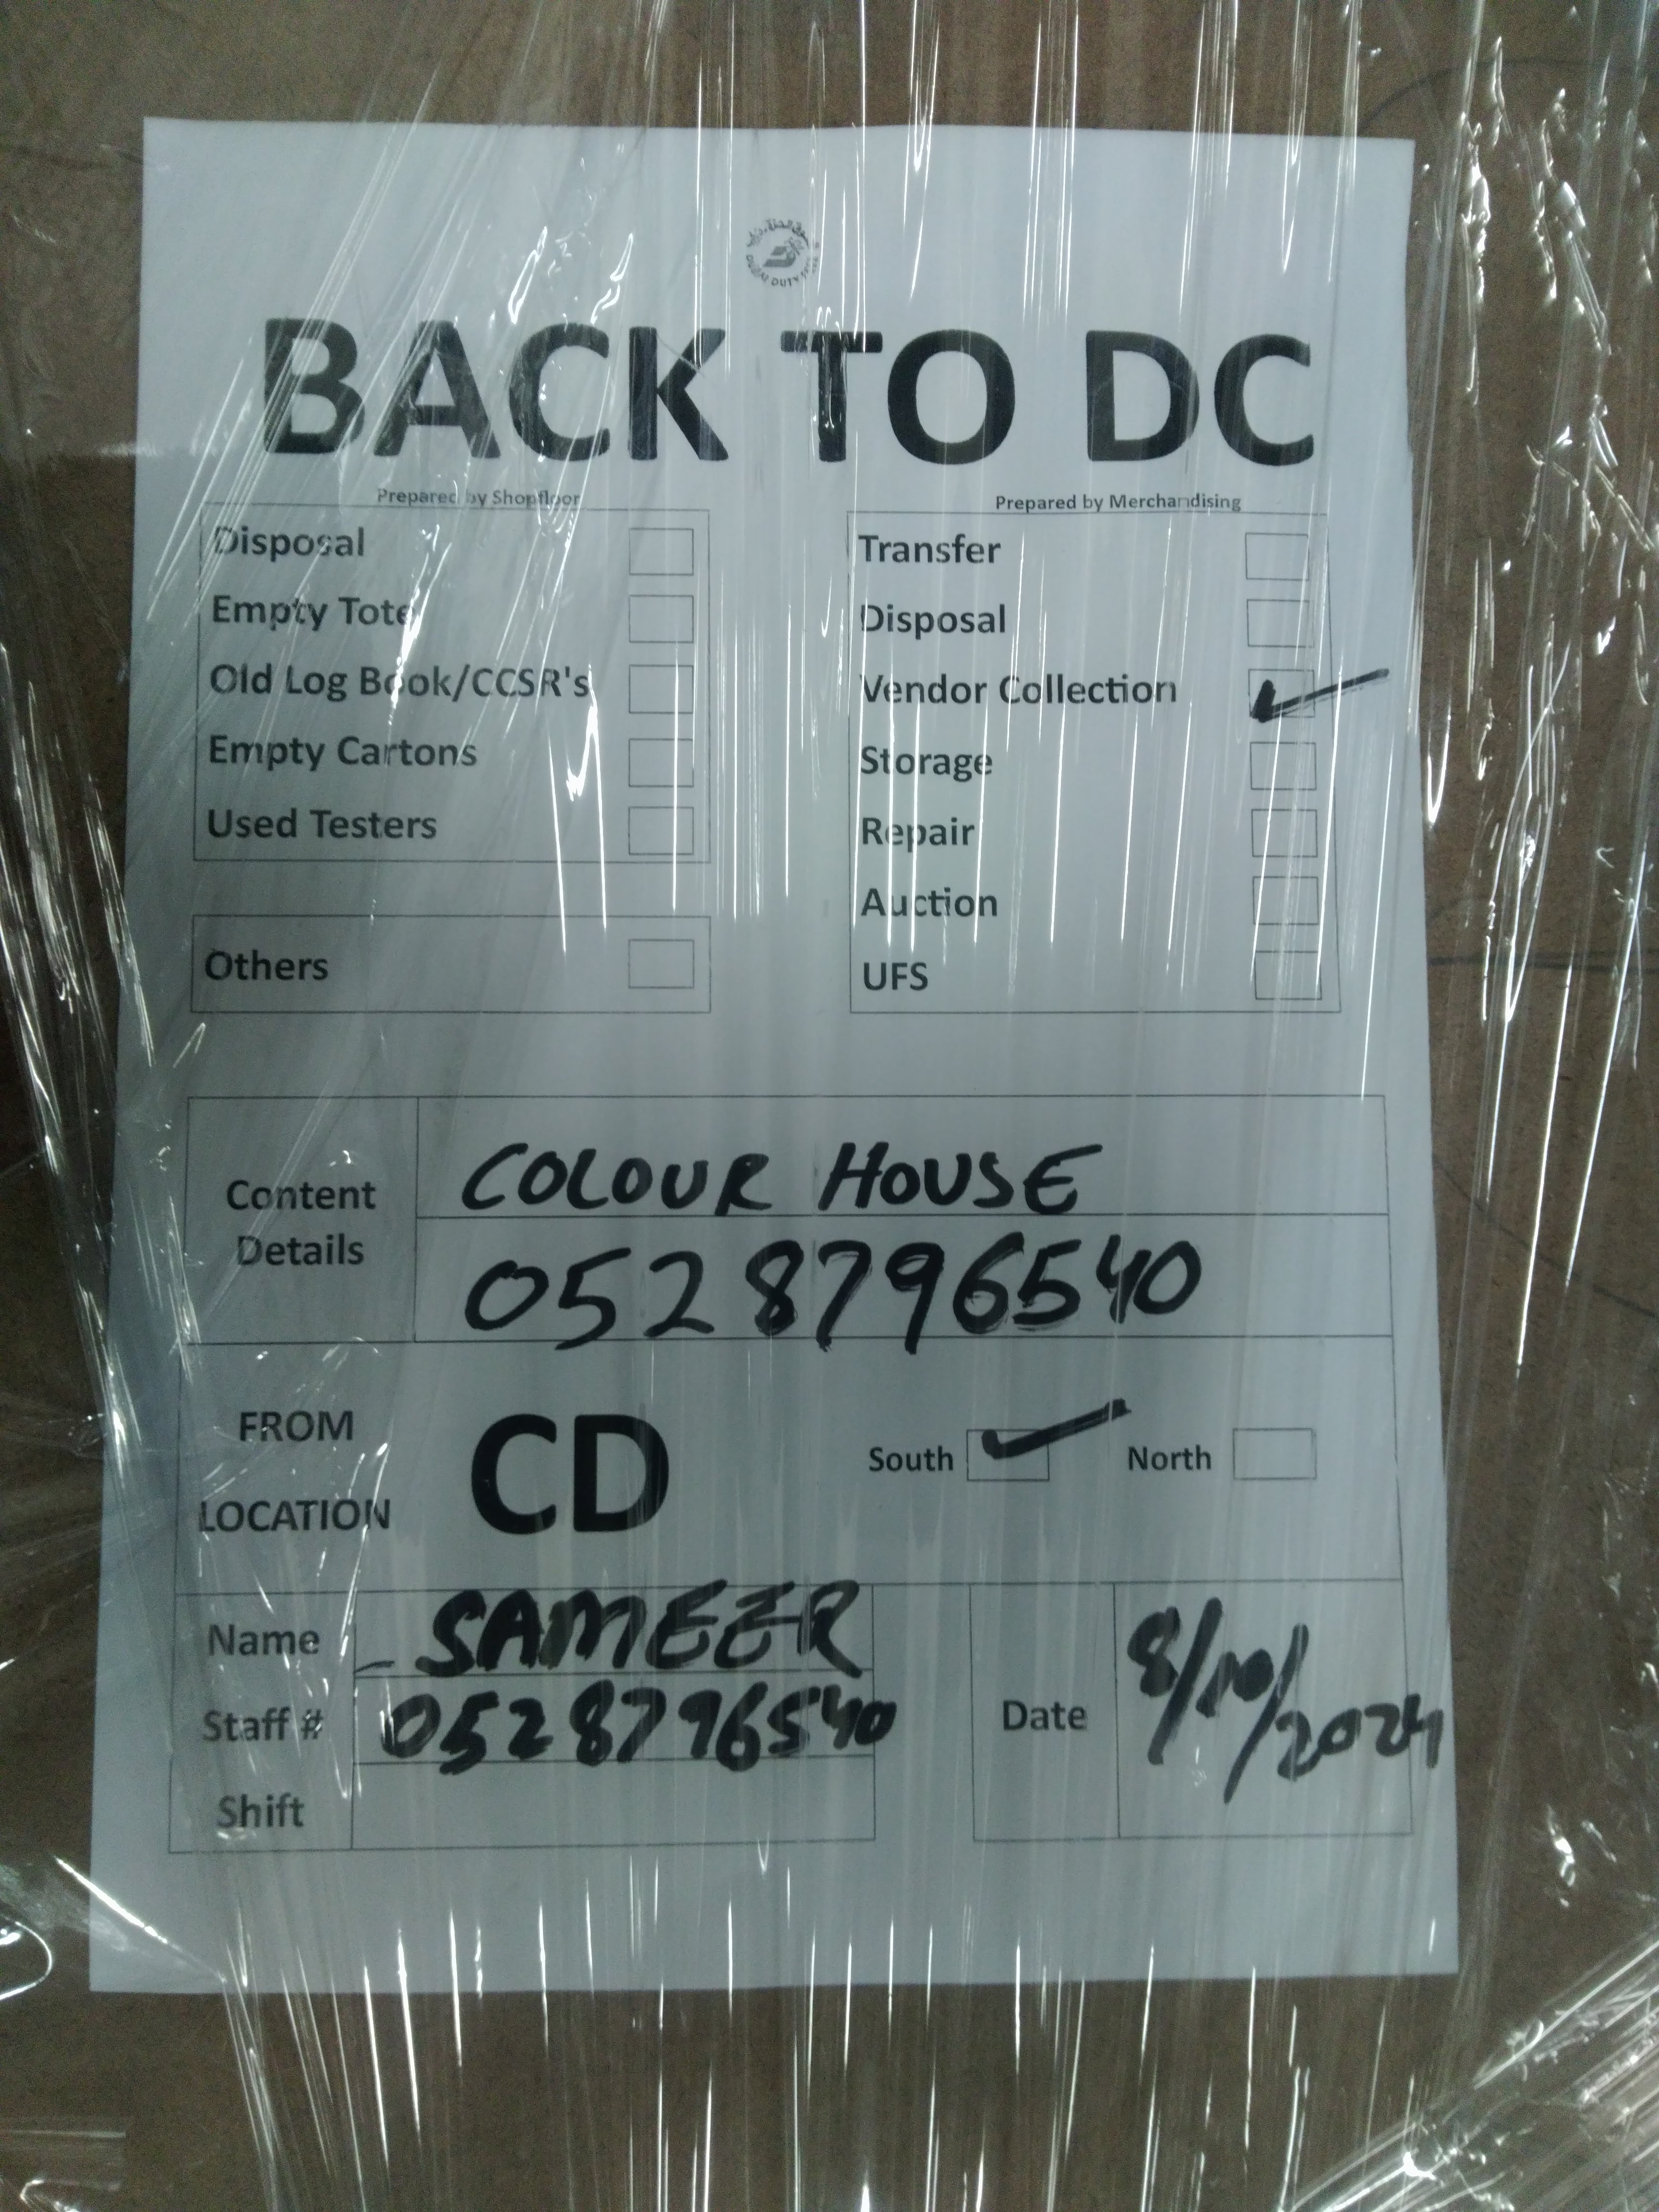 DUBAI DUTY FREE
BACK TO DC
Prepared by Shopfloor
Disposal
Empty Tote
Old Log Book/CCSR's
Empty Cartons
Used Testers
Others
Prepared by Merchandising
Transfer
Disposal
Vendor Collection
Storage
Repair
Auction
UFS
Content Details
COLOUR HOUSE
0528796540
FROM LOCATION
CD
South
North
Name SAMEER
Staff # 0528796540
Shift
Date 8/10/2024